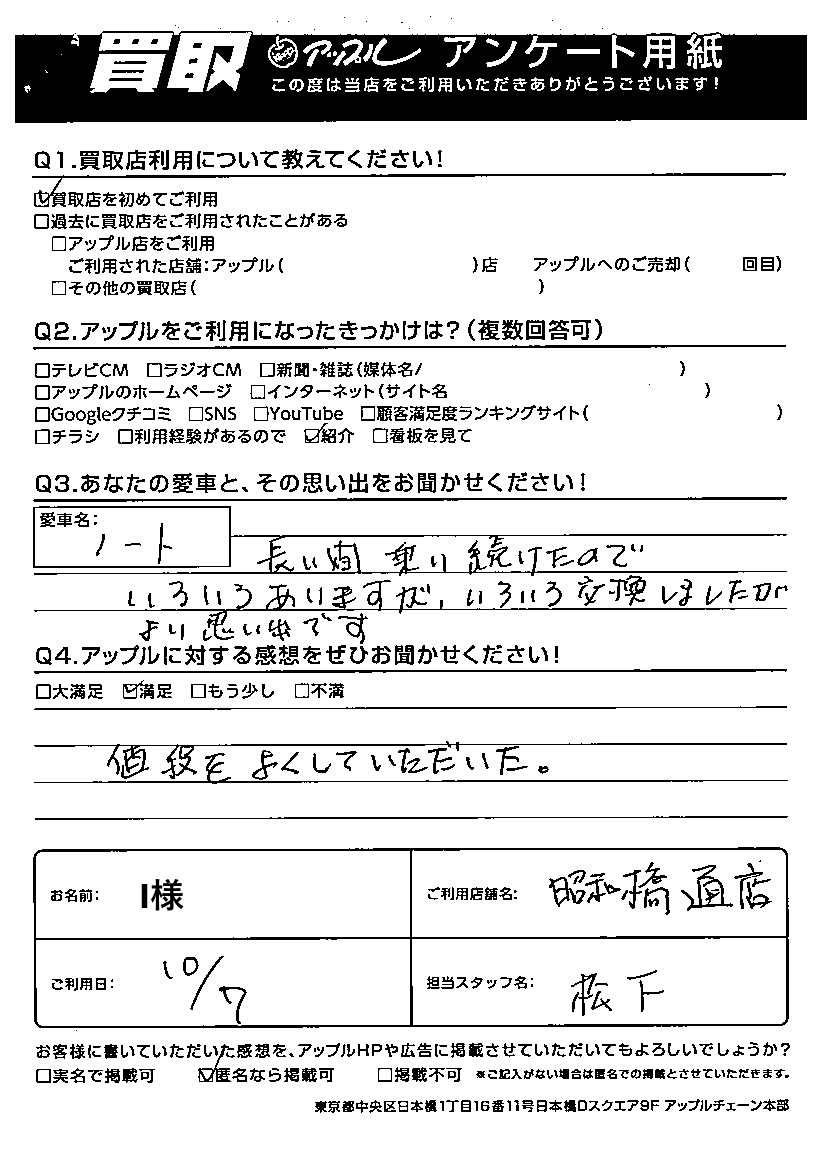 買取 アップル アンケート用紙
この度は当店をご利用いただきありがとうございます!
Q1.買取店利用について教えてください!
☑買取店を初めてご利用
□過去に買取店をご利用されたことがある
□アップル店をご利用
ご利用された店舗:アップル( )店 アップルへのご売却( 回目)
□その他の買取店( )
Q2.アップルをご利用になったきっかけは?(複数回答可)
□テレビCM □ラジオCM □新聞・雑誌(媒体名/ )
□アップルのホームページ □インターネット(サイト名 )
□Googleクチコミ □SNS □YouTube □顧客満足度ランキングサイト( )
□チラシ □利用経験があるので ☑紹介 □看板を見て
Q3.あなたの愛車と、その思い出をお聞かせください!
愛車名:
ノート
長い間 乗り続けたので
いろいろありますが、いろいろ交換しましたが
より思い出です
Q4.アップルに対する感想をぜひお聞かせください!
□大満足 ☑満足 □もう少し □不満
値段をよくしていただいた。
お名前: I様 ご利用店舗名: 昭和橋通店
ご利用日: 10/7 担当スタッフ名: 松下
お客様に書いていただいた感想を、アップルHPや広告に掲載させていただいてもよろしいでしょうか?
□実名で掲載可 ☑匿名なら掲載可 □掲載不可 ※ご記入がない場合は匿名での掲載とさせていただきます。
東京都中央区日本橋1丁目16番11号日本橋Dスクエア9F アップルチェーン本部